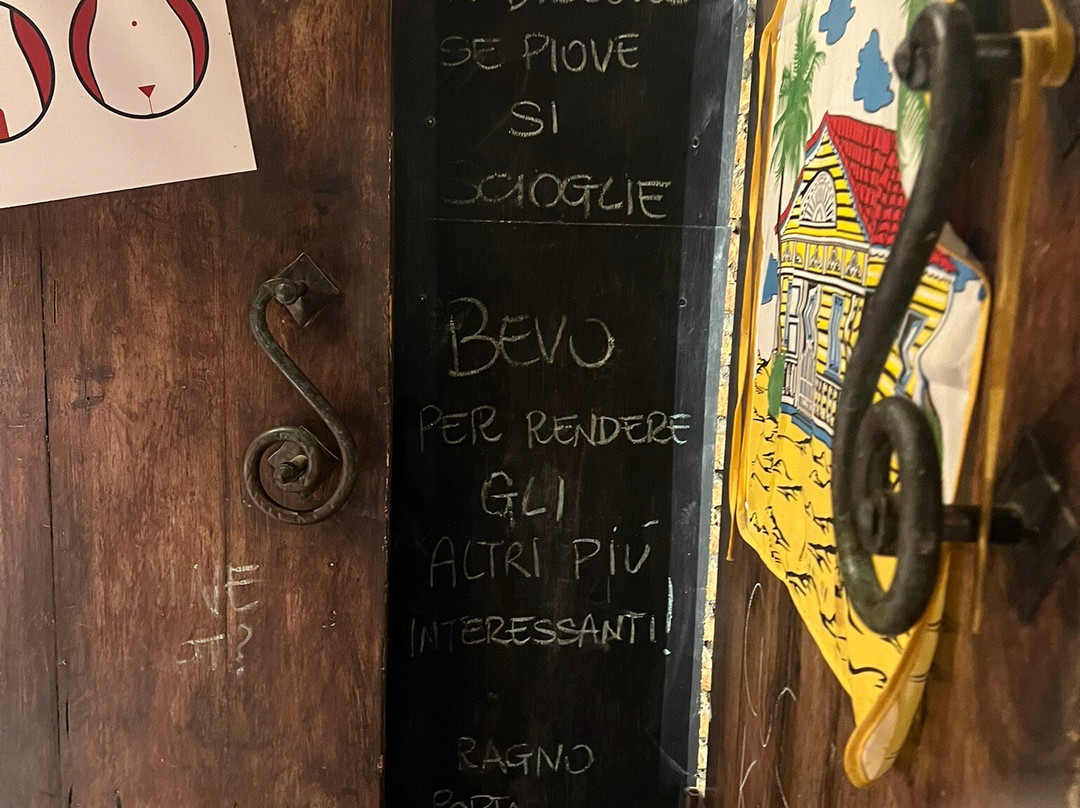 SE PIOVE
SI
SCIOGLIE
BEVO
PER RENDERE
GLI
ALTRI PIÚ
INTERESSANTI!
RAGNO
PORTA